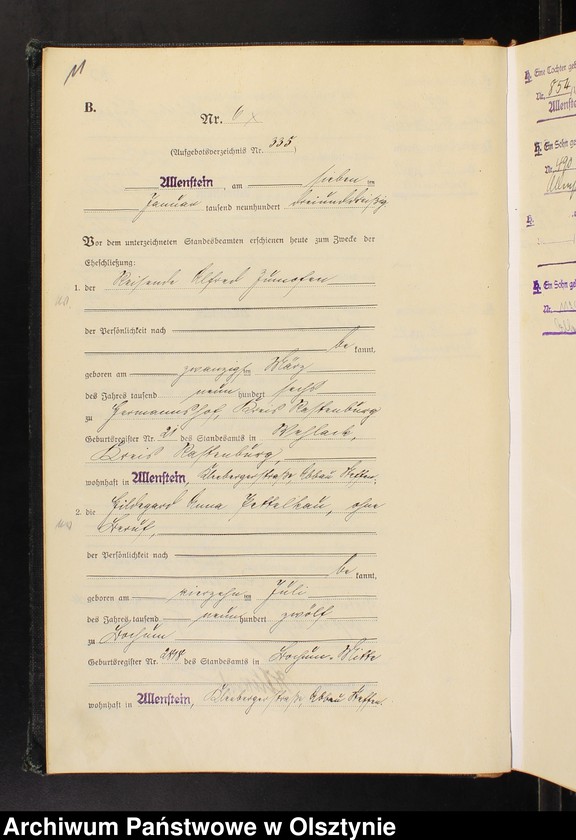 11
B.
Nr. 6
(Aufgebotsverzeichnis Nr. 335)
Allenstein, am sieben ten
Januar tausend neunhundert dreiunddreißig
Vor dem unterzeichneten Standesbeamten erschienen heute zum Zwecke der
Eheschließung:
1. der Reisende Alfred
der Persönlichkeit nach
be kannt,
geboren am zwanzigsten März
des Jahres tausend neun hundert sechs
zu Hermannshof, Kreis Rastenburg
Geburtsregister Nr. 21 des Standesamts in Wehlack,
Kreis Rastenburg,
wohnhaft in Allenstein, Abbau
2. die Hildegard Anna, ohne
Beruf,
der Persönlichkeit nach
be kannt,
geboren am vierzehn ten Juli
des Jahres tausend neun hundert zwölf
zu Bochum
Geburtsregister Nr. des Standesamts in Bochum
wohnhaft in Allenstein, Abbau
h. Eine Tochter
Nr. 854
Allenst
h. Ein Sohn
Nr. 490
h.
h. Ein Sohn
Nr.
Archiwum Państwowe w Olsztynie